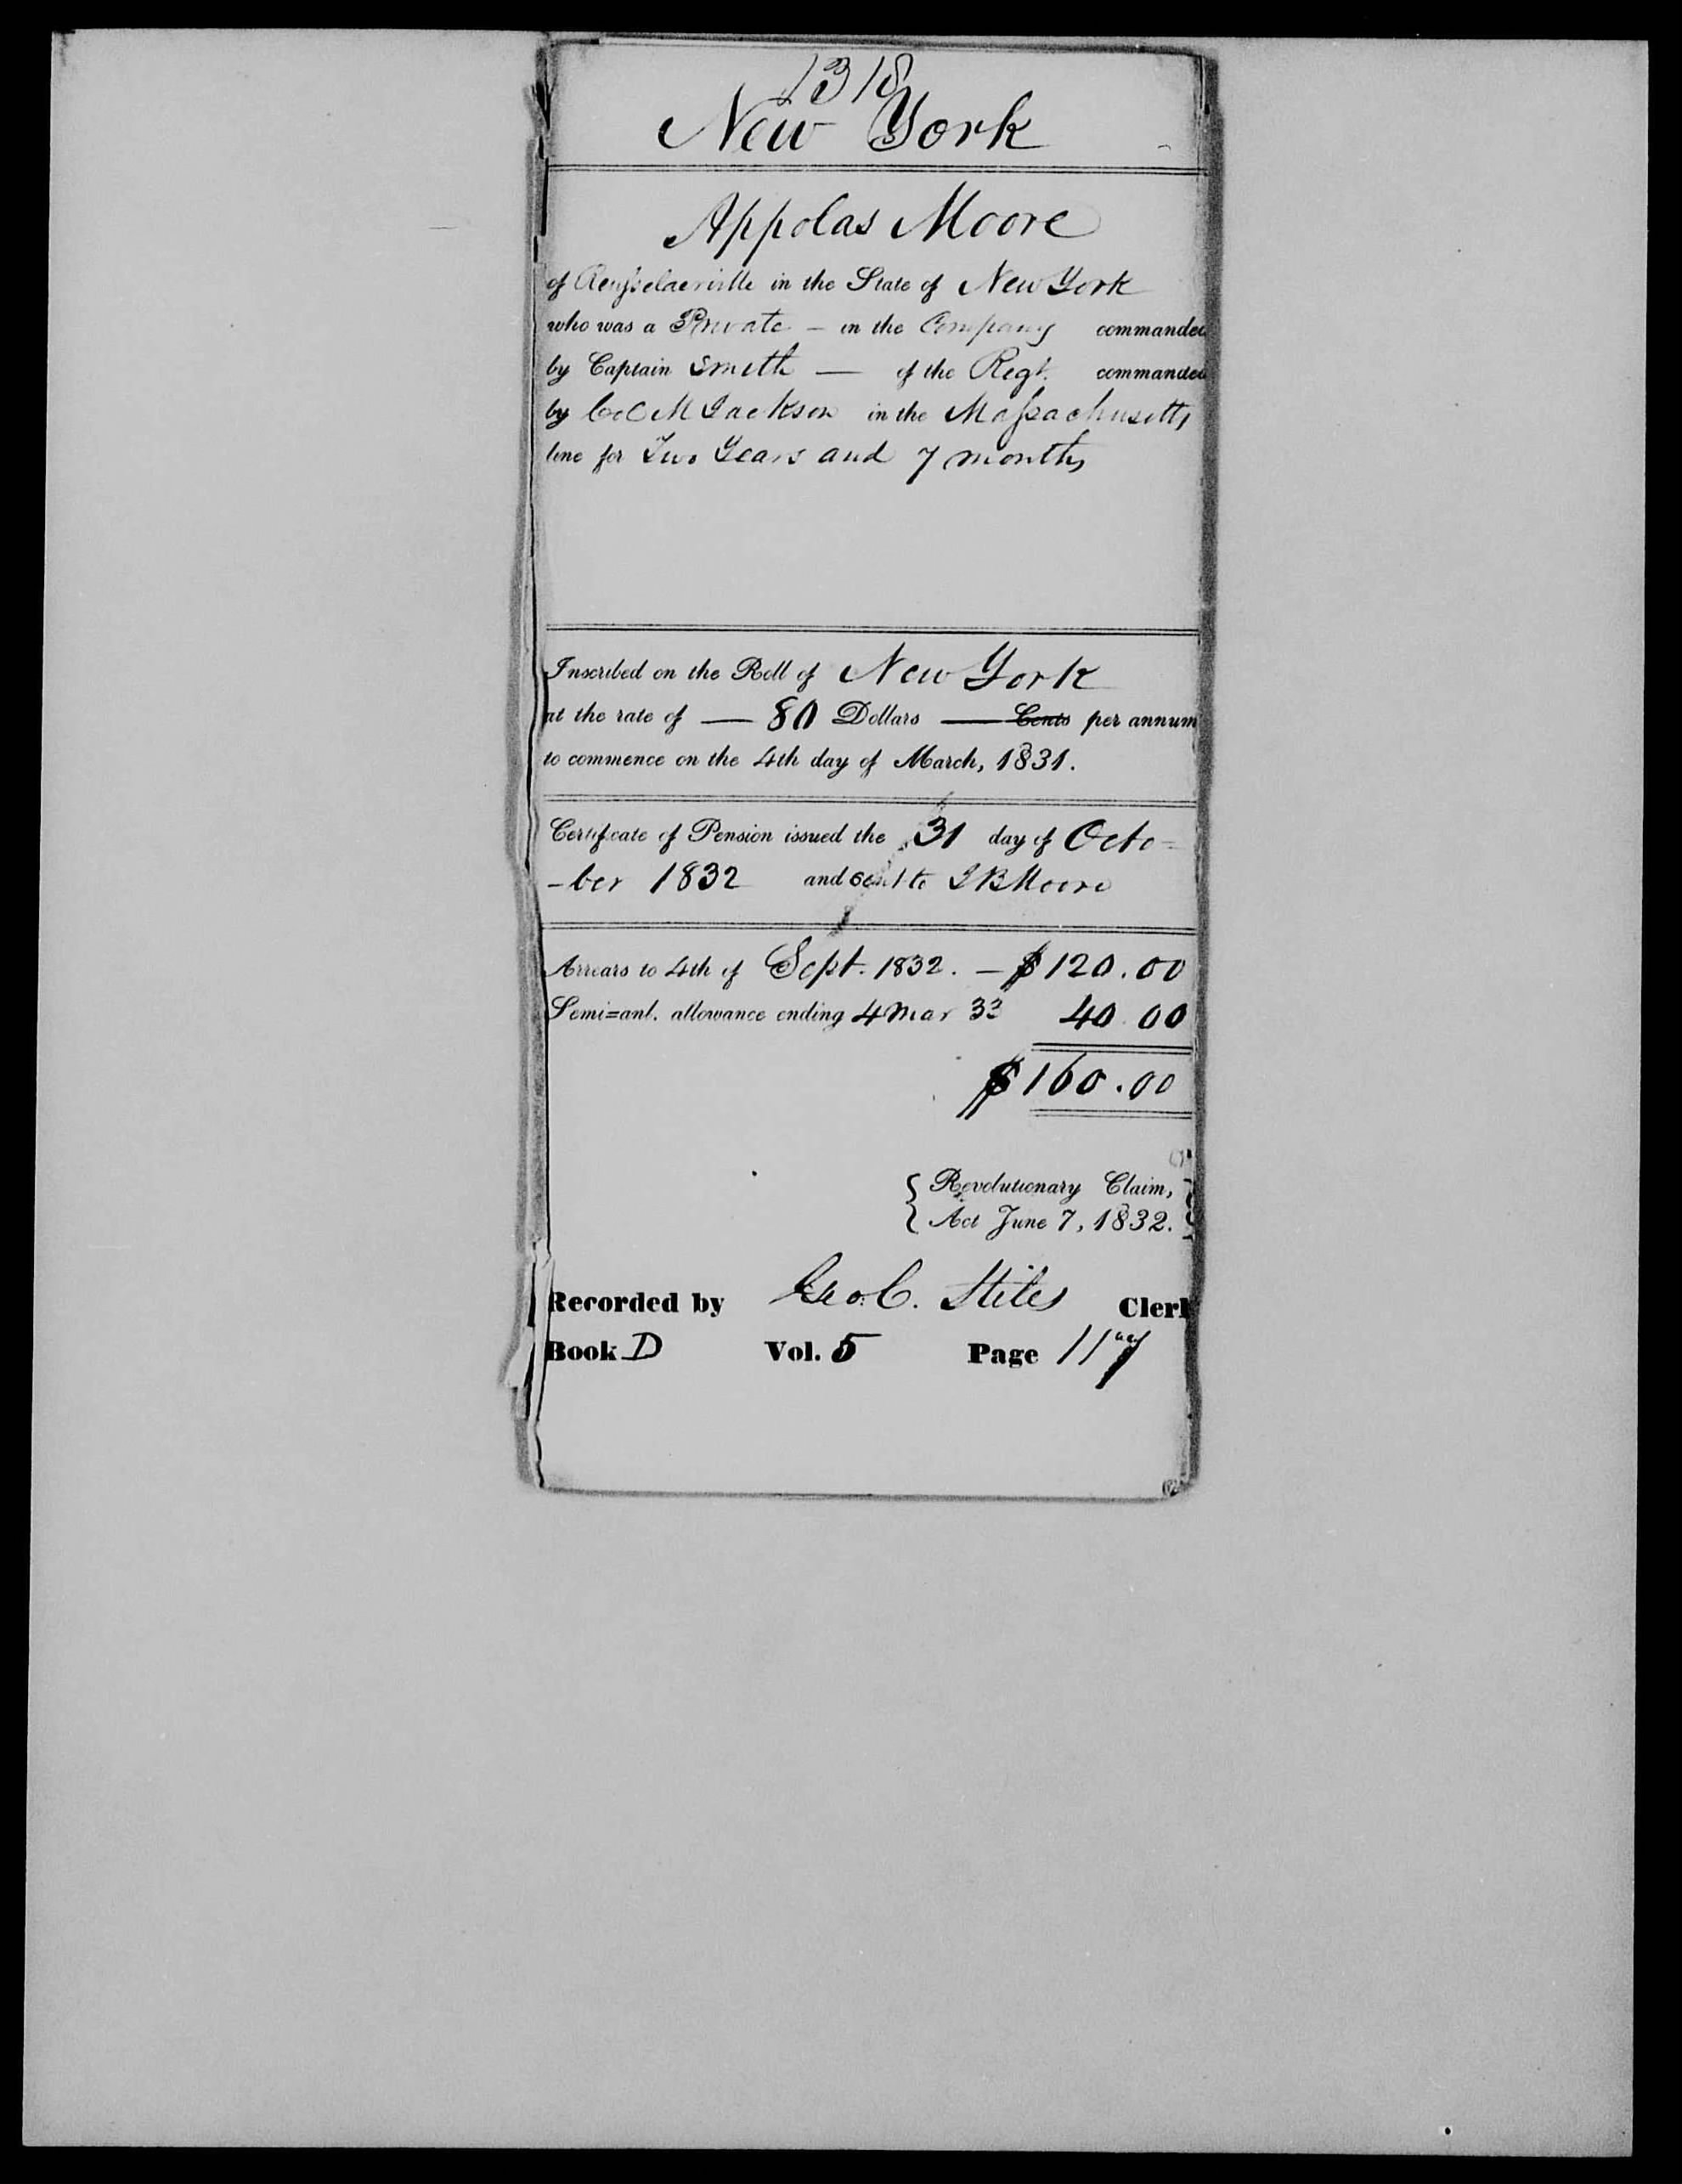 1318
New York
Appolas Moore
of Rensselaerville in the State of New York
who was a Private – in the Company commanded
by Captain Smith — of the Regt. commanded
by Col M Jackson in the Massachusetts
line for Two Years and 7 months
Inscribed on the Roll of New York
at the rate of — 80 Dollars — Cents per annum
to commence on the 4th day of March, 1831.
Certificate of Pension issued the 31 day of Octo-
-ber 1832 and sent to I B Moore
Arrears to 4th of Sept. 1832. – $120.00
Semi=anl. allowance ending 4 Mar 33 40 00
$160.00
Revolutionary Claim,
Act June 7, 1832.
Recorded by Geo. C. Stiles Clerk
Book D Vol. 5 Page 117